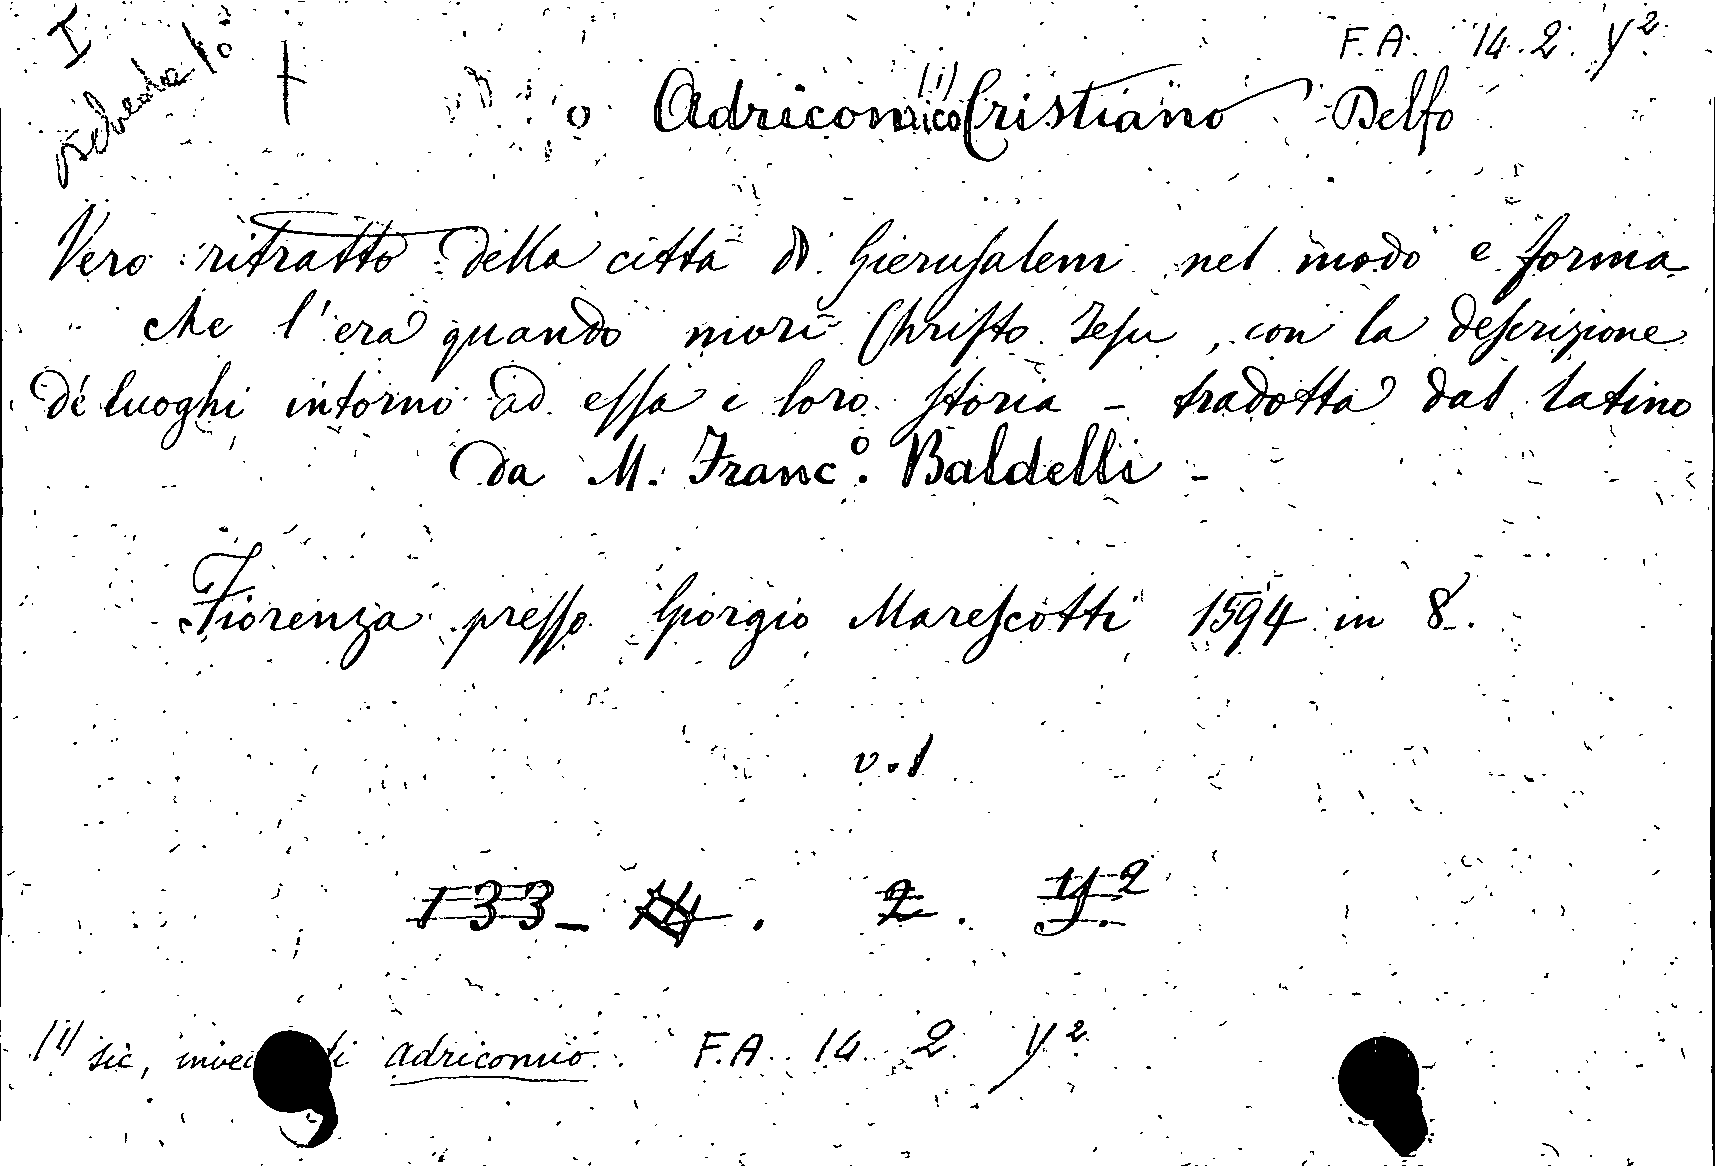 I
scheda 1°
F.A. 14. 2. Y²
o Adricomico (1) Cristiano Delfo
Vero ritratto della città di Gierusalem nel modo e forma
che l'era quando morì Christo Jesu, con la descrizione
de' luoghi intorno ad essa e loro storia – tradotta dal latino
da M. Franc.º Baldelli –
Fiorenza presso Giorgio Marescotti 1594 in 8.
v. 1
133 – 14. 2. Y.²
(1) sic, di Adricomio. F.A. 14 2 Y²